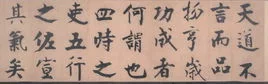 天道不
言而品
物亨歲
功成者
何謂也
四時之
吏五行
之佐宣
其氣矣